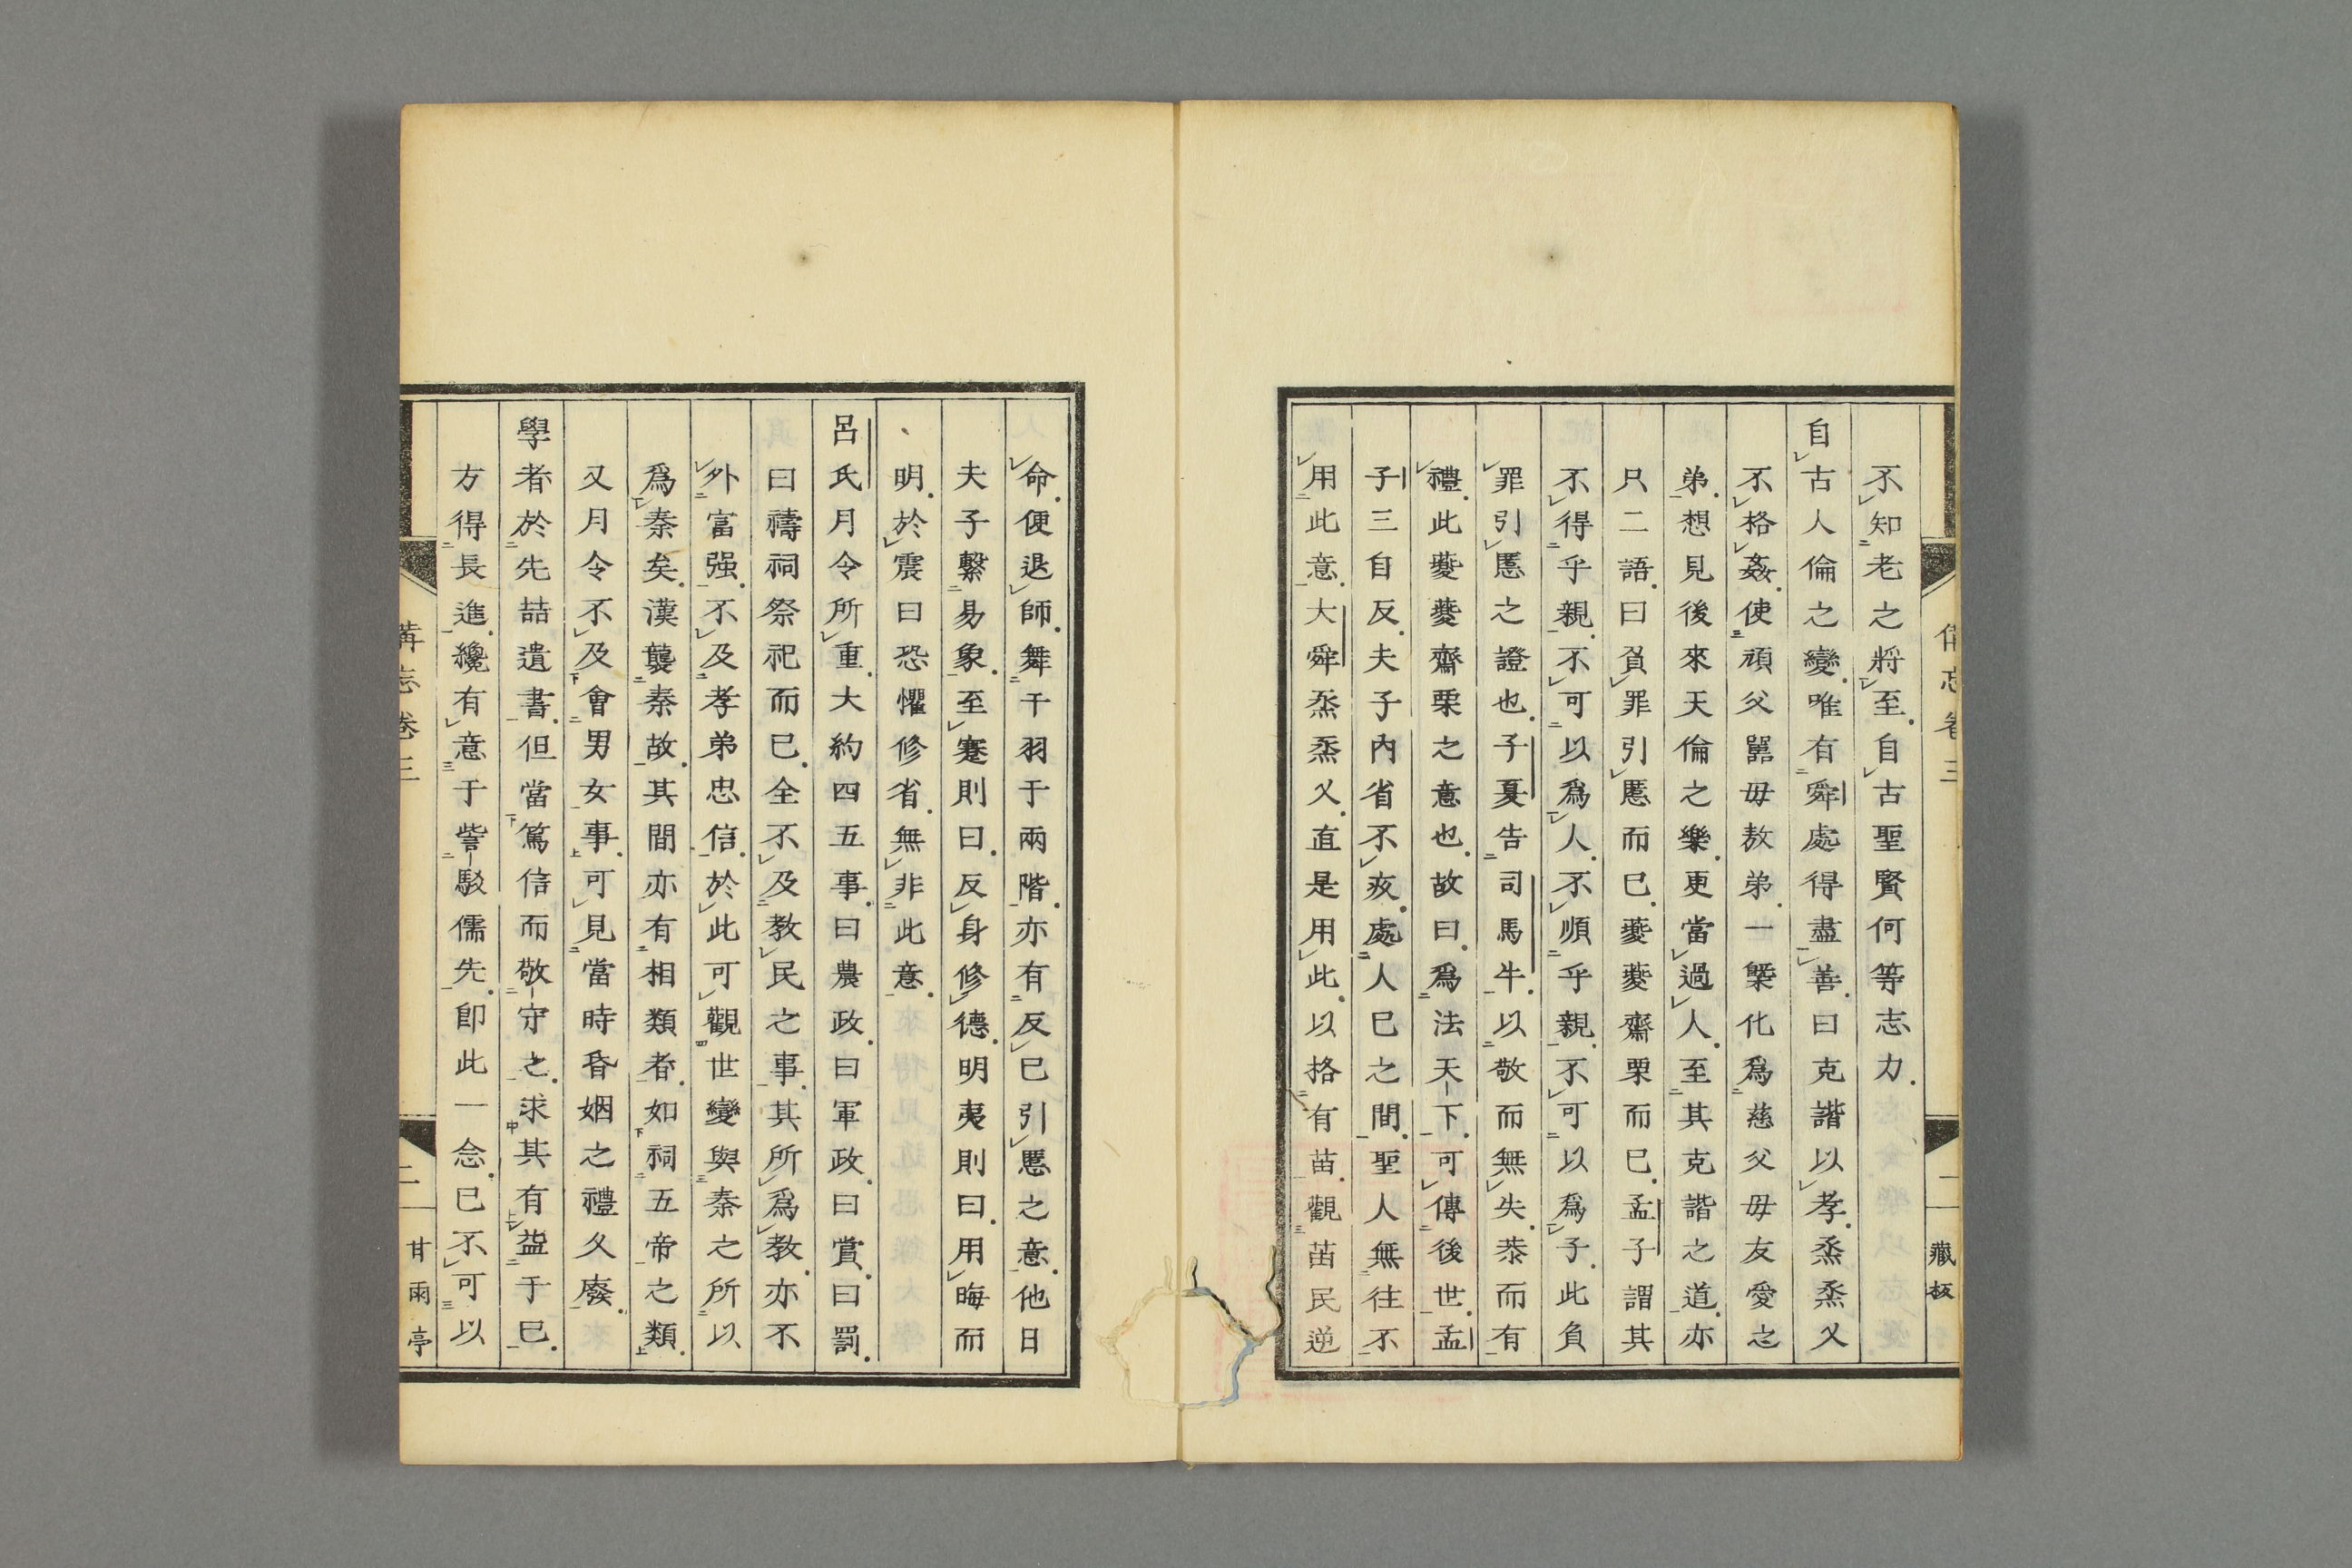 不知老之將至自古聖賢何等志力
自古人倫之變唯有舜處得盡善曰克諧以孝烝烝乂
不格姦使頑父嚚母敖弟一槩化爲慈父母友愛之
弟想見後來天倫之樂更當過人至其克諧之道亦
只二語曰負罪引慝而已夔夔齋栗而已孟子謂其
不得乎親不可以爲人不順乎親不可以爲子此負
罪引慝之證也子夏告司馬牛以敬而無失恭而有
禮此夔夔齋栗之意也故曰爲法天下可傳後世孟
子三自反夫子內省不疚處人己之間聖人無往不
用此意大舜烝烝乂直是用此以格有苗觀苗民逆
備忘卷三
二
藏板
命便退師舞干羽于兩階亦有反已引慝之意他日
夫子繫易象至蹇則曰反身修德明夷則曰用晦而
明於震曰恐懼修省無非此意
呂氏月令所重大約四五事曰農政曰軍政曰賞曰罰
曰禱祠祭祀而已全不及敎民之事其所爲敎亦不
外富强不及孝弟忠信於此可觀世變與秦之所以
爲秦矣漢襲秦故其間亦有相類者如祠五帝之類
又月令不及會男女事可見當時昏姻之禮久廢
學者於先喆遺書但當篤信而敬守之求其有益于已
方得長進纔有意于訾駁儒先即此一念已不可以
備忘卷三
二
甘雨亭